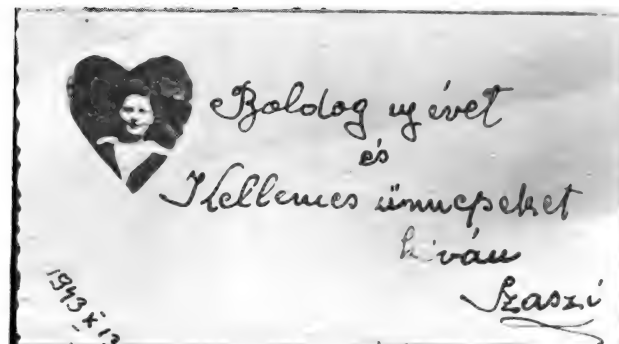 Boldog uj évet
és
Kellemes ünnepeket
kíván
Szaszi
1943 X 13